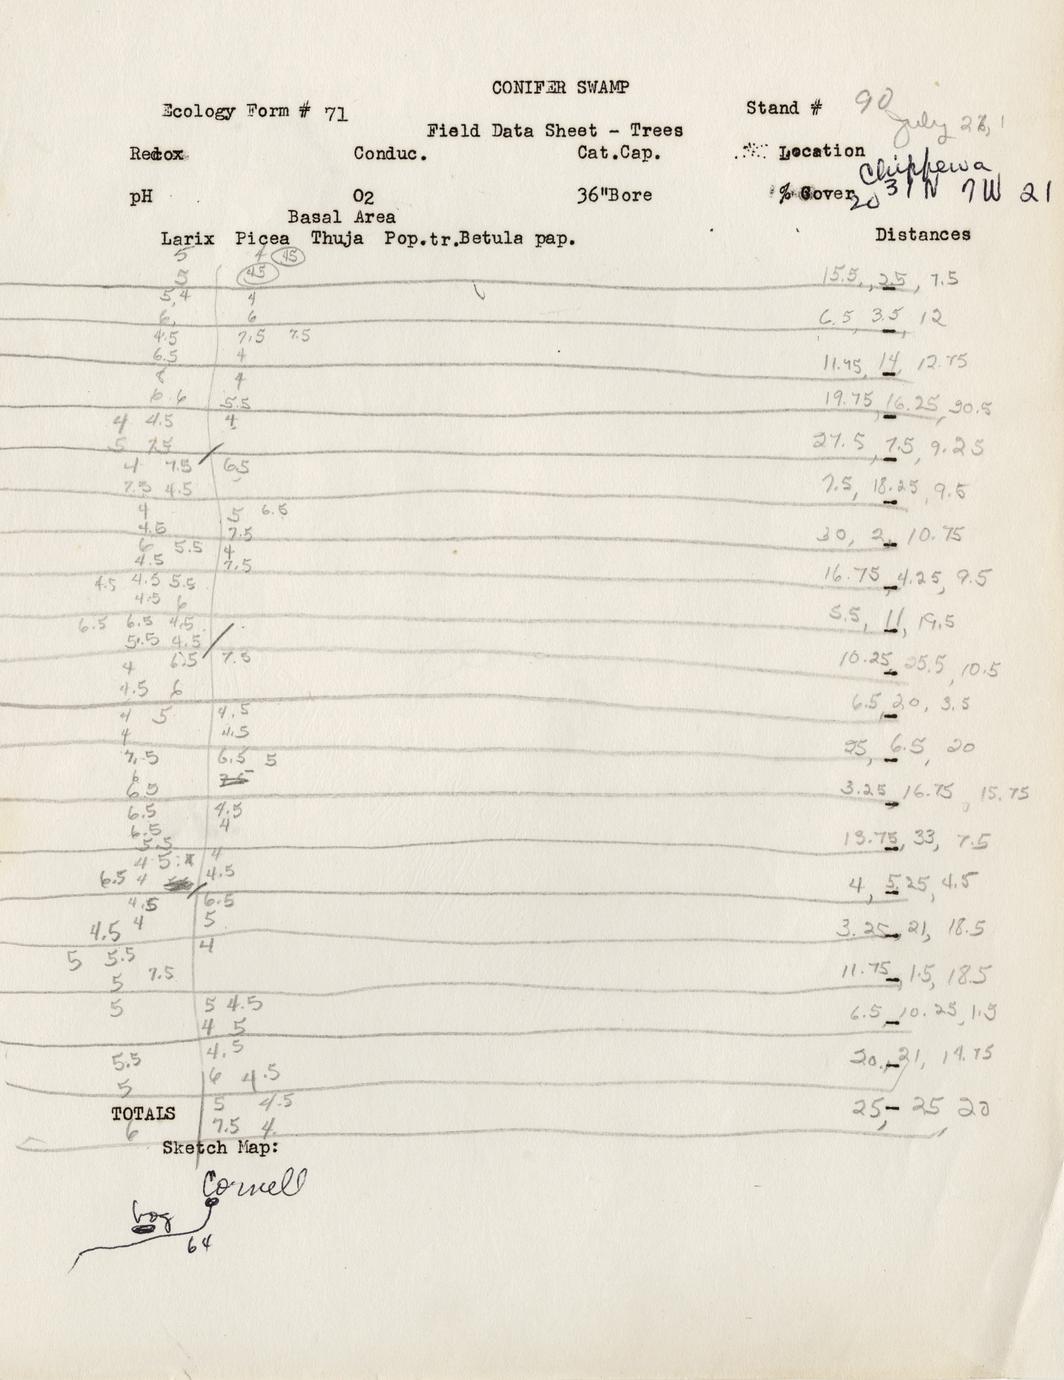 CONIFER SWAMP
Ecology Form # 71
Stand # 90
July
Field Data Sheet - Trees
Redox Conduc. Cat.Cap. Location
Chippewa
pH O2 36"Bore % Cover 20 31N 7W 21
Basal Area
Larix Picea Thuja Pop.tr. Betula pap. Distances
5 4 45
5 45 15.5, 2.5, 7.5
5,4 4
6, 6 6.5, 3.5, 12
4.5 7.5 7.5
6.5 4 14, 12.75
8 4
6 6 5.5 19.75, 16.25, 20.5
4 4.5 4
5 7.5 27.5, 7.5, 9.25
4 7.5 6.5
7.5 4.5 7.5, 18.25, 9.5
4 5 6.5
4.5 7.5 30, 2, 10.75
6 5.5 4
4.5 7.5
4.5 4.5 5.5 16.75, 4.25, 9.5
4.5 6
6.5 6.5 4.5 5.5, 11, 19.5
5.5 4.5
4 6.5 7.5 10.25, 25.5, 10.5
4.5 6
4 5 4.5 6.5, 20, 3.5
4 4.5
7.5 6.5 5 25, 6.5, 20
6 7.5
6.5 3.25, 16.75, 15.75
6.5 4.5
6.5 4
5.5 13.75, 33, 7.5
4 5 4
6.5 4 4.5 4, 5.25, 4.5
4.5 6.5
4.5 4 5 3.25, 21, 18.5
4
5 5.5
5 7.5 11.75, 1.5, 18.5
5 5 4.5 6.5, 10.25, 1.5
4 5
5.5 4.5 20, 21, 14.75
5 6 4.5
TOTALS 5 4.5 25, 25, 20
6 7.5 4
Sketch Map:
Cornell
bog
64